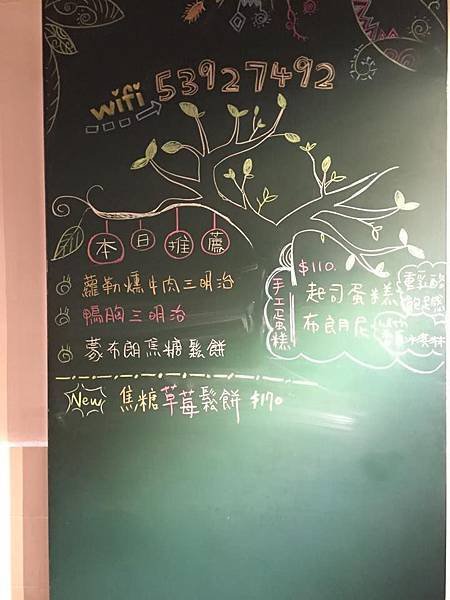 wifi 53927492
本日推薦
蘿勒燻牛肉三明治
鴨胸三明治
蒙布朗焦糖鬆餅
New 焦糖草莓鬆餅 $170
手工蛋糕
$110.
起司蛋糕
重乳酪
布朗尼
with
冰淇淋